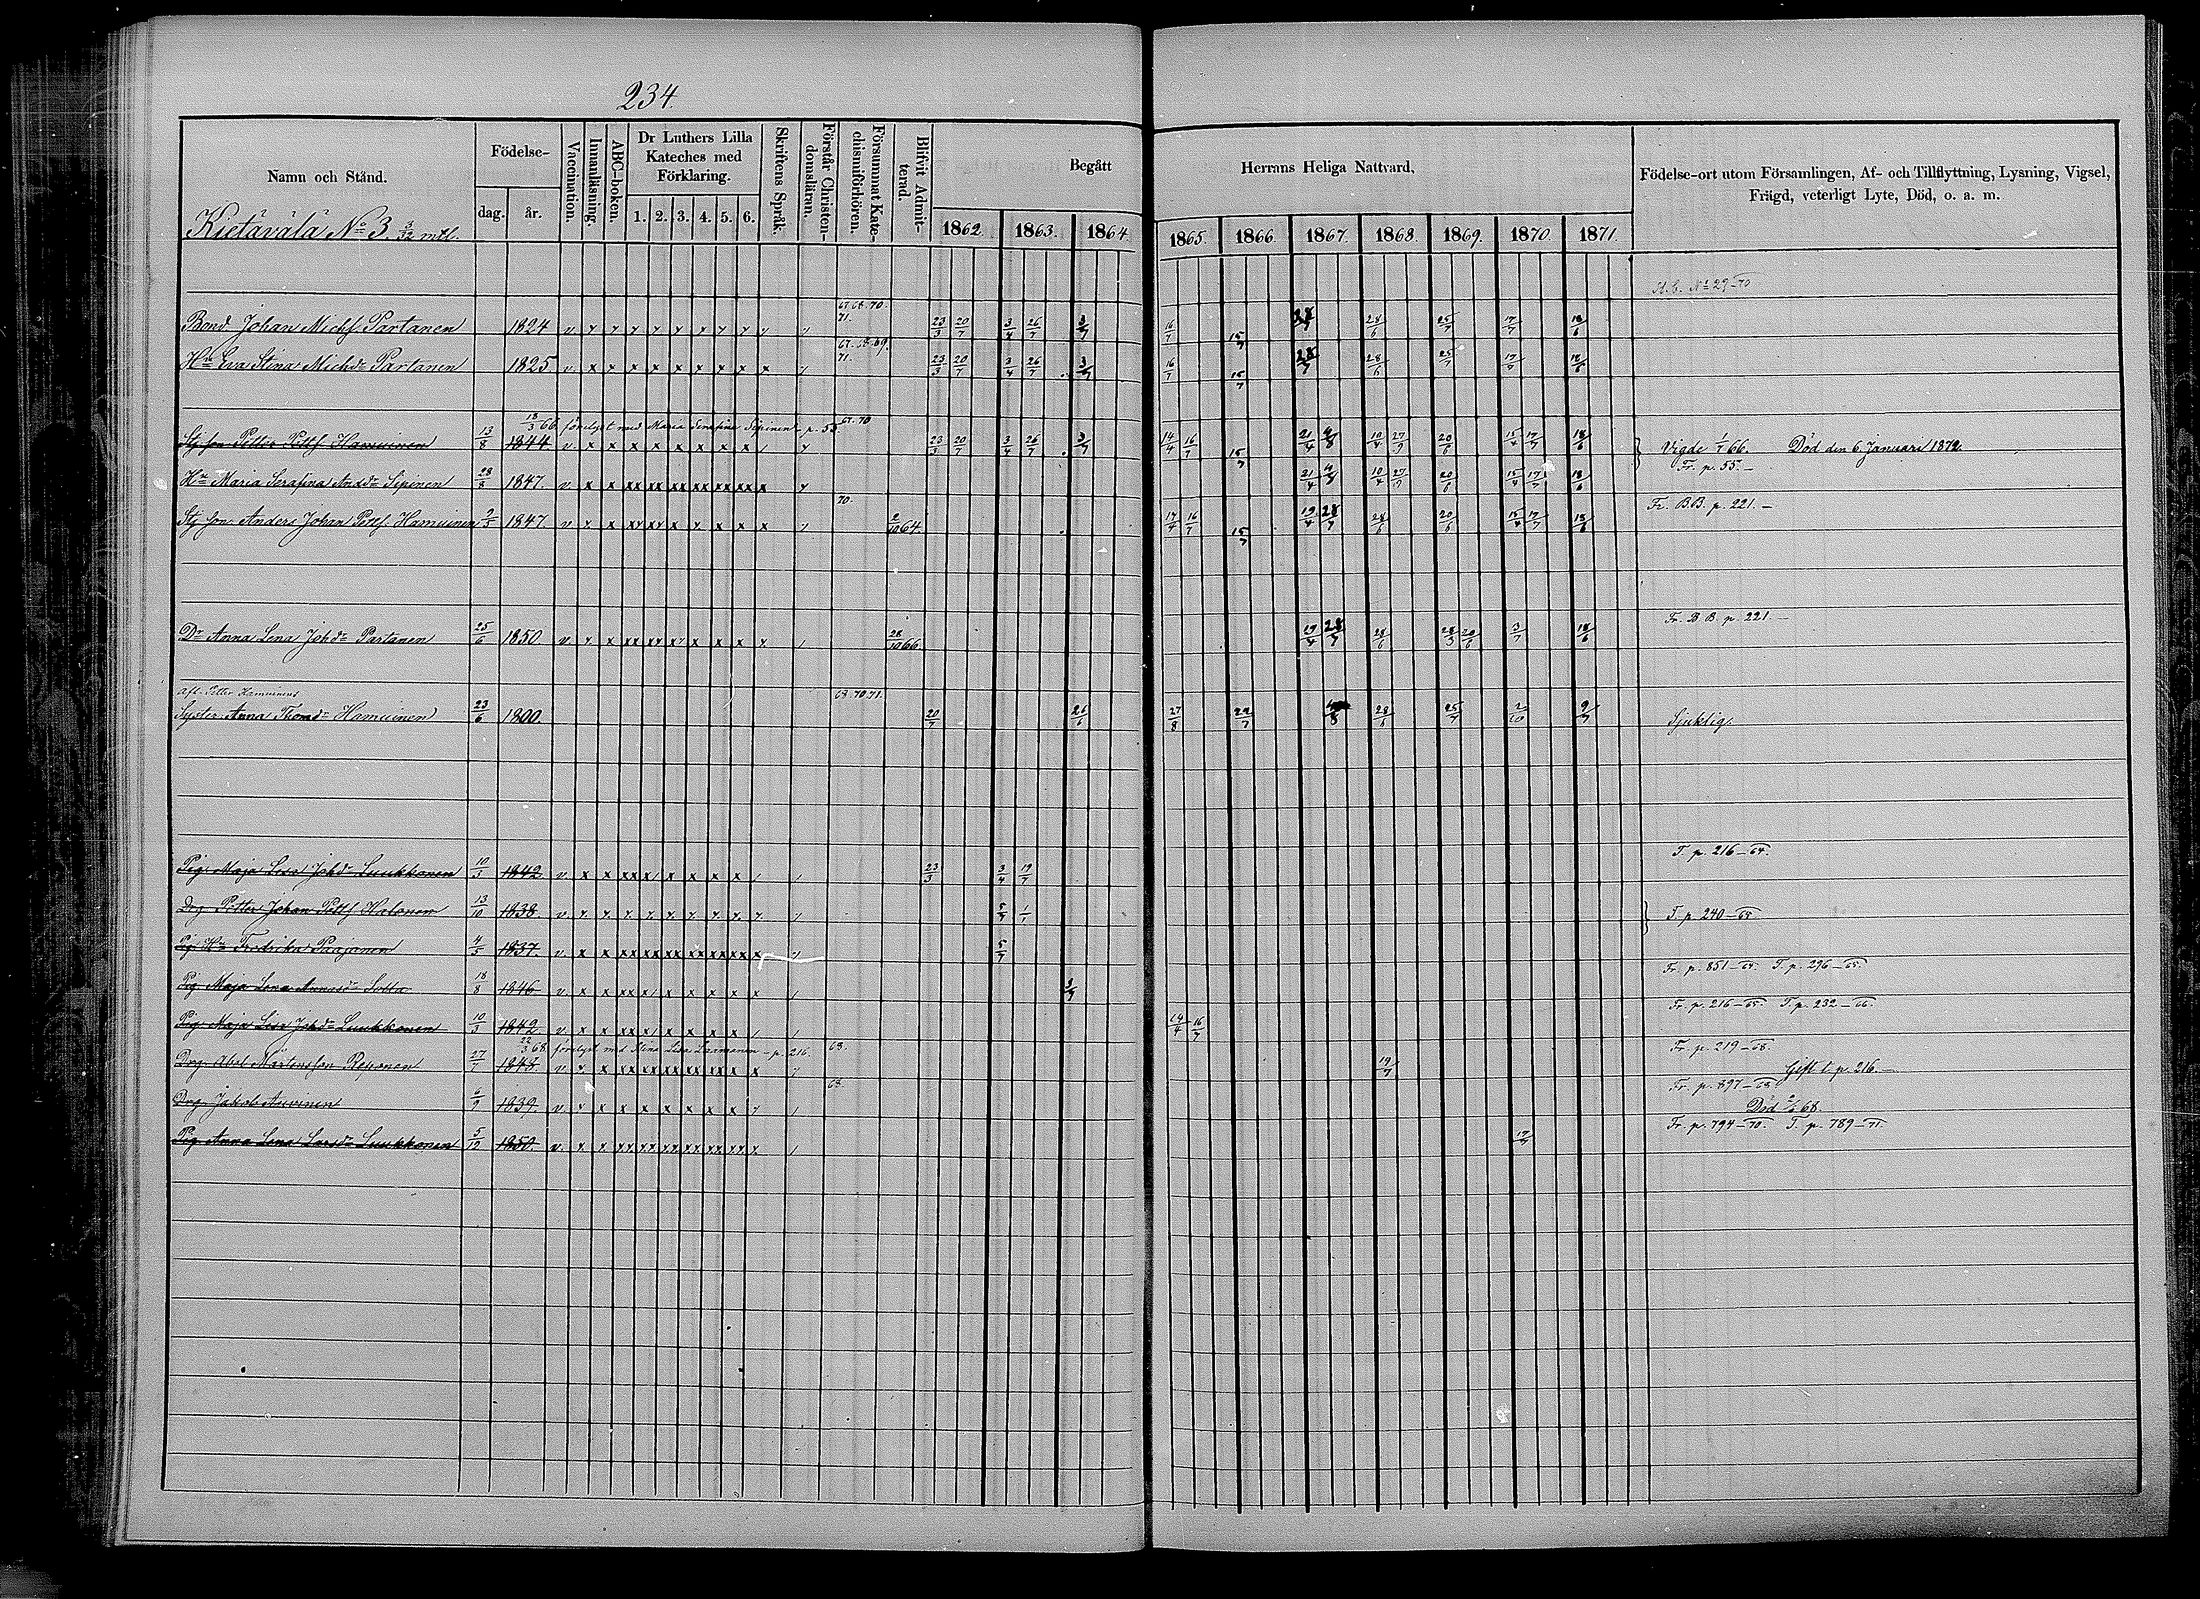 234.
Namn och Stånd.
Födelse-
dag.
år.
Vaccination.
Innanläsning.
ABC-boken.
Dr Luthers Lilla
Kateches med
Förklaring.
1. 2. 3. 4. 5. 6.
Skriftens Språk.
Förstår Christen-
domsläran.
Försummat Kate-
chismiförhören.
Blifvit Admit-
terad.
Begått
Herrans Heliga Nattvard,
1862. 1863. 1864. 1865. 1866. 1867. 1868. 1869. 1870. 1871.
Födelse-ort utom Församlingen, Af- och Tillflyttning, Lysning, Vigsel,
Frägd, veterligt Lyte, Död, o. a. m.
Kietäwälä No 3. 3/32 mtl.
No 29-70
67. 68. 70.
71.
Bond Johan Michs Partanen 1824 v. 23/3 20/7 3/4 26/7 3/7 16/7 15/7 28/7 28/6 25/7 17/7 18/6
67. 68. 69.
71.
Hu Eva Stina Michdr Partanen 1825 v. 23/3 20/7 3/4 26/7 3/7 16/7 15/7 28/7 28/6 25/7 17/7 18/6
18/3 66 förelyst med Maria Serafina Sipinen p. 55 67. 70
Stjson Petter Pettf Hamuinen 13/8 1844. v 23/3 20/7 3/4 26/7 3/7 14/4 16/7 15/7 21/4 4/8 10/4 27/9 20/6 15/4 17/7 18/6 Vigde 1/7 66. Död den 6 Januari 1872.
Hu Maria Serafina Anddr Sipinen 28/8 1847. v 21/4 4/8 10/4 27/9 20/6 15/4 17/7 18/6 Fr. p. 55. -
70.
Stjson Anders Johan Pettf. Hamuinen 1847. v 2/10 64. 14/4 16/7 15/7 19/4 28/7 28/6 20/6 15/4 17/7 18/6 Fr. B.B. p. 221. -
Dr Anna Lena Johdr Partanen 25/6 1850. v. 28/10 66. 19/4 28/7 28/6 28/3 20/6 3/7 18/6 Fr. B.B. p. 221. -
Afl. Petter Hamuinens 68. 70. 71.
Syster Anna Thomdr Hamuinen 23/6 1800. 20/7 26/6 27/8 22/7 4/8 28/6 25/7 2/10 9/7 Sjuklig.
Pig. Maja Lisa Johdr Luukkonen 10/3 1842. v. 23/3 3/4 19/7 T. p. 216-64.
Drg. Petter Johan Pettf Halonen 13/10 1838. v. 5/7 1/1 T. p. 240-65.
Hu Fredrika Paajanen 4/5 1837. v. 5/7
Pig. Maja Lena 18/8 1846. v. 3/7 Fr. p. 851-64. T. p. 296-65.
Pig. Maja Lisa Johdr Luukkonen 10/3 1842 v. 14/4 16/7 Fr. p. 216-65. T. p. 232-66.
22/3 68. förelyst med Stina Lisa p. 216. 68.
Drg. Abel Mårtensson Reponen 27/7 1848. v. 19/7 Fr. p. 219-68. Gift t. p. 216. -
68.
Drg. Jakob Auvinen 6/9 1839. v. Fr. p. 897-68. Död 68.
Pig. Anna Lena Larsdr Luukkonen 5/12 1850. v. 17/7 Fr. p. 794-70. T. p. 789-71.